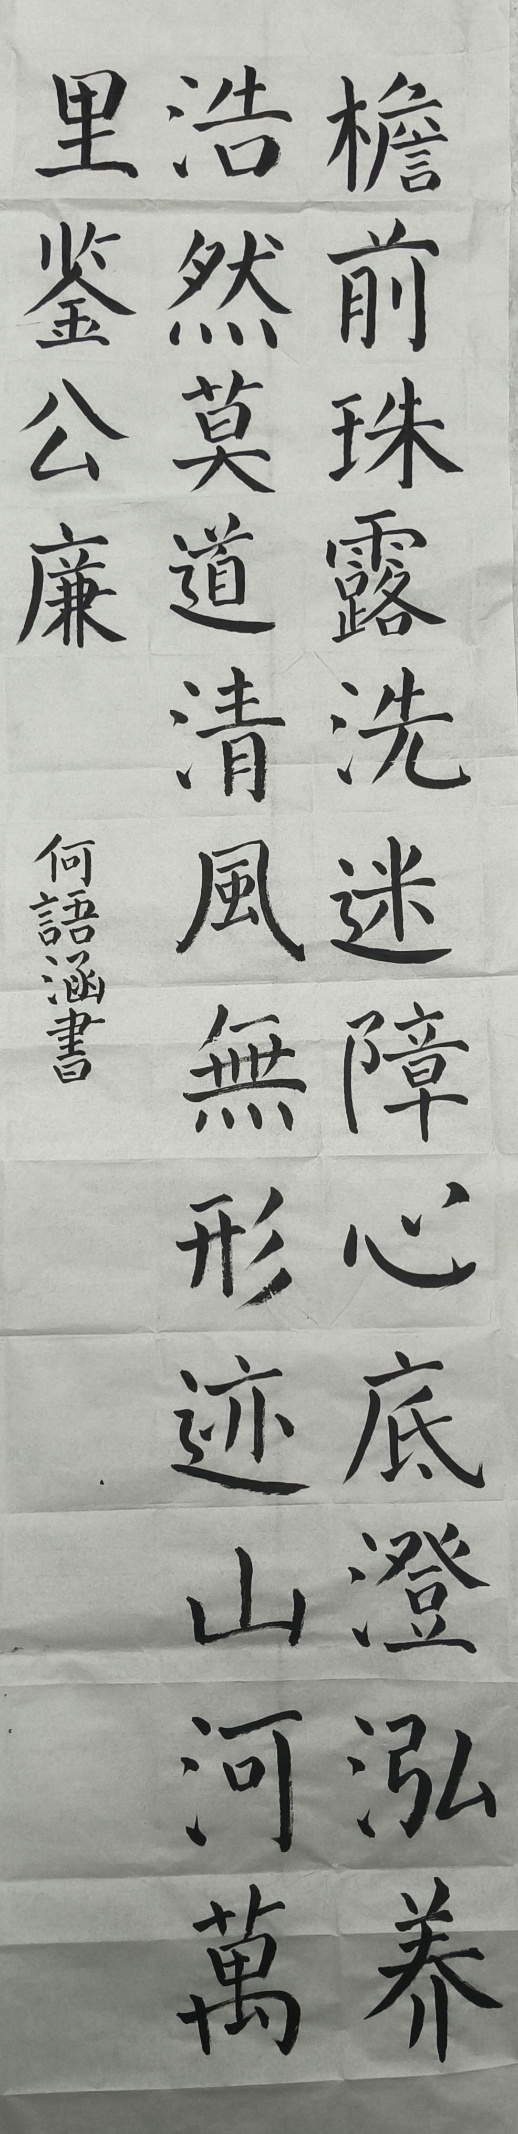 檐前珠露洗迷障心底澄泓养
浩然莫道清風無形迹山河萬
里鉴公廉
何語涵書